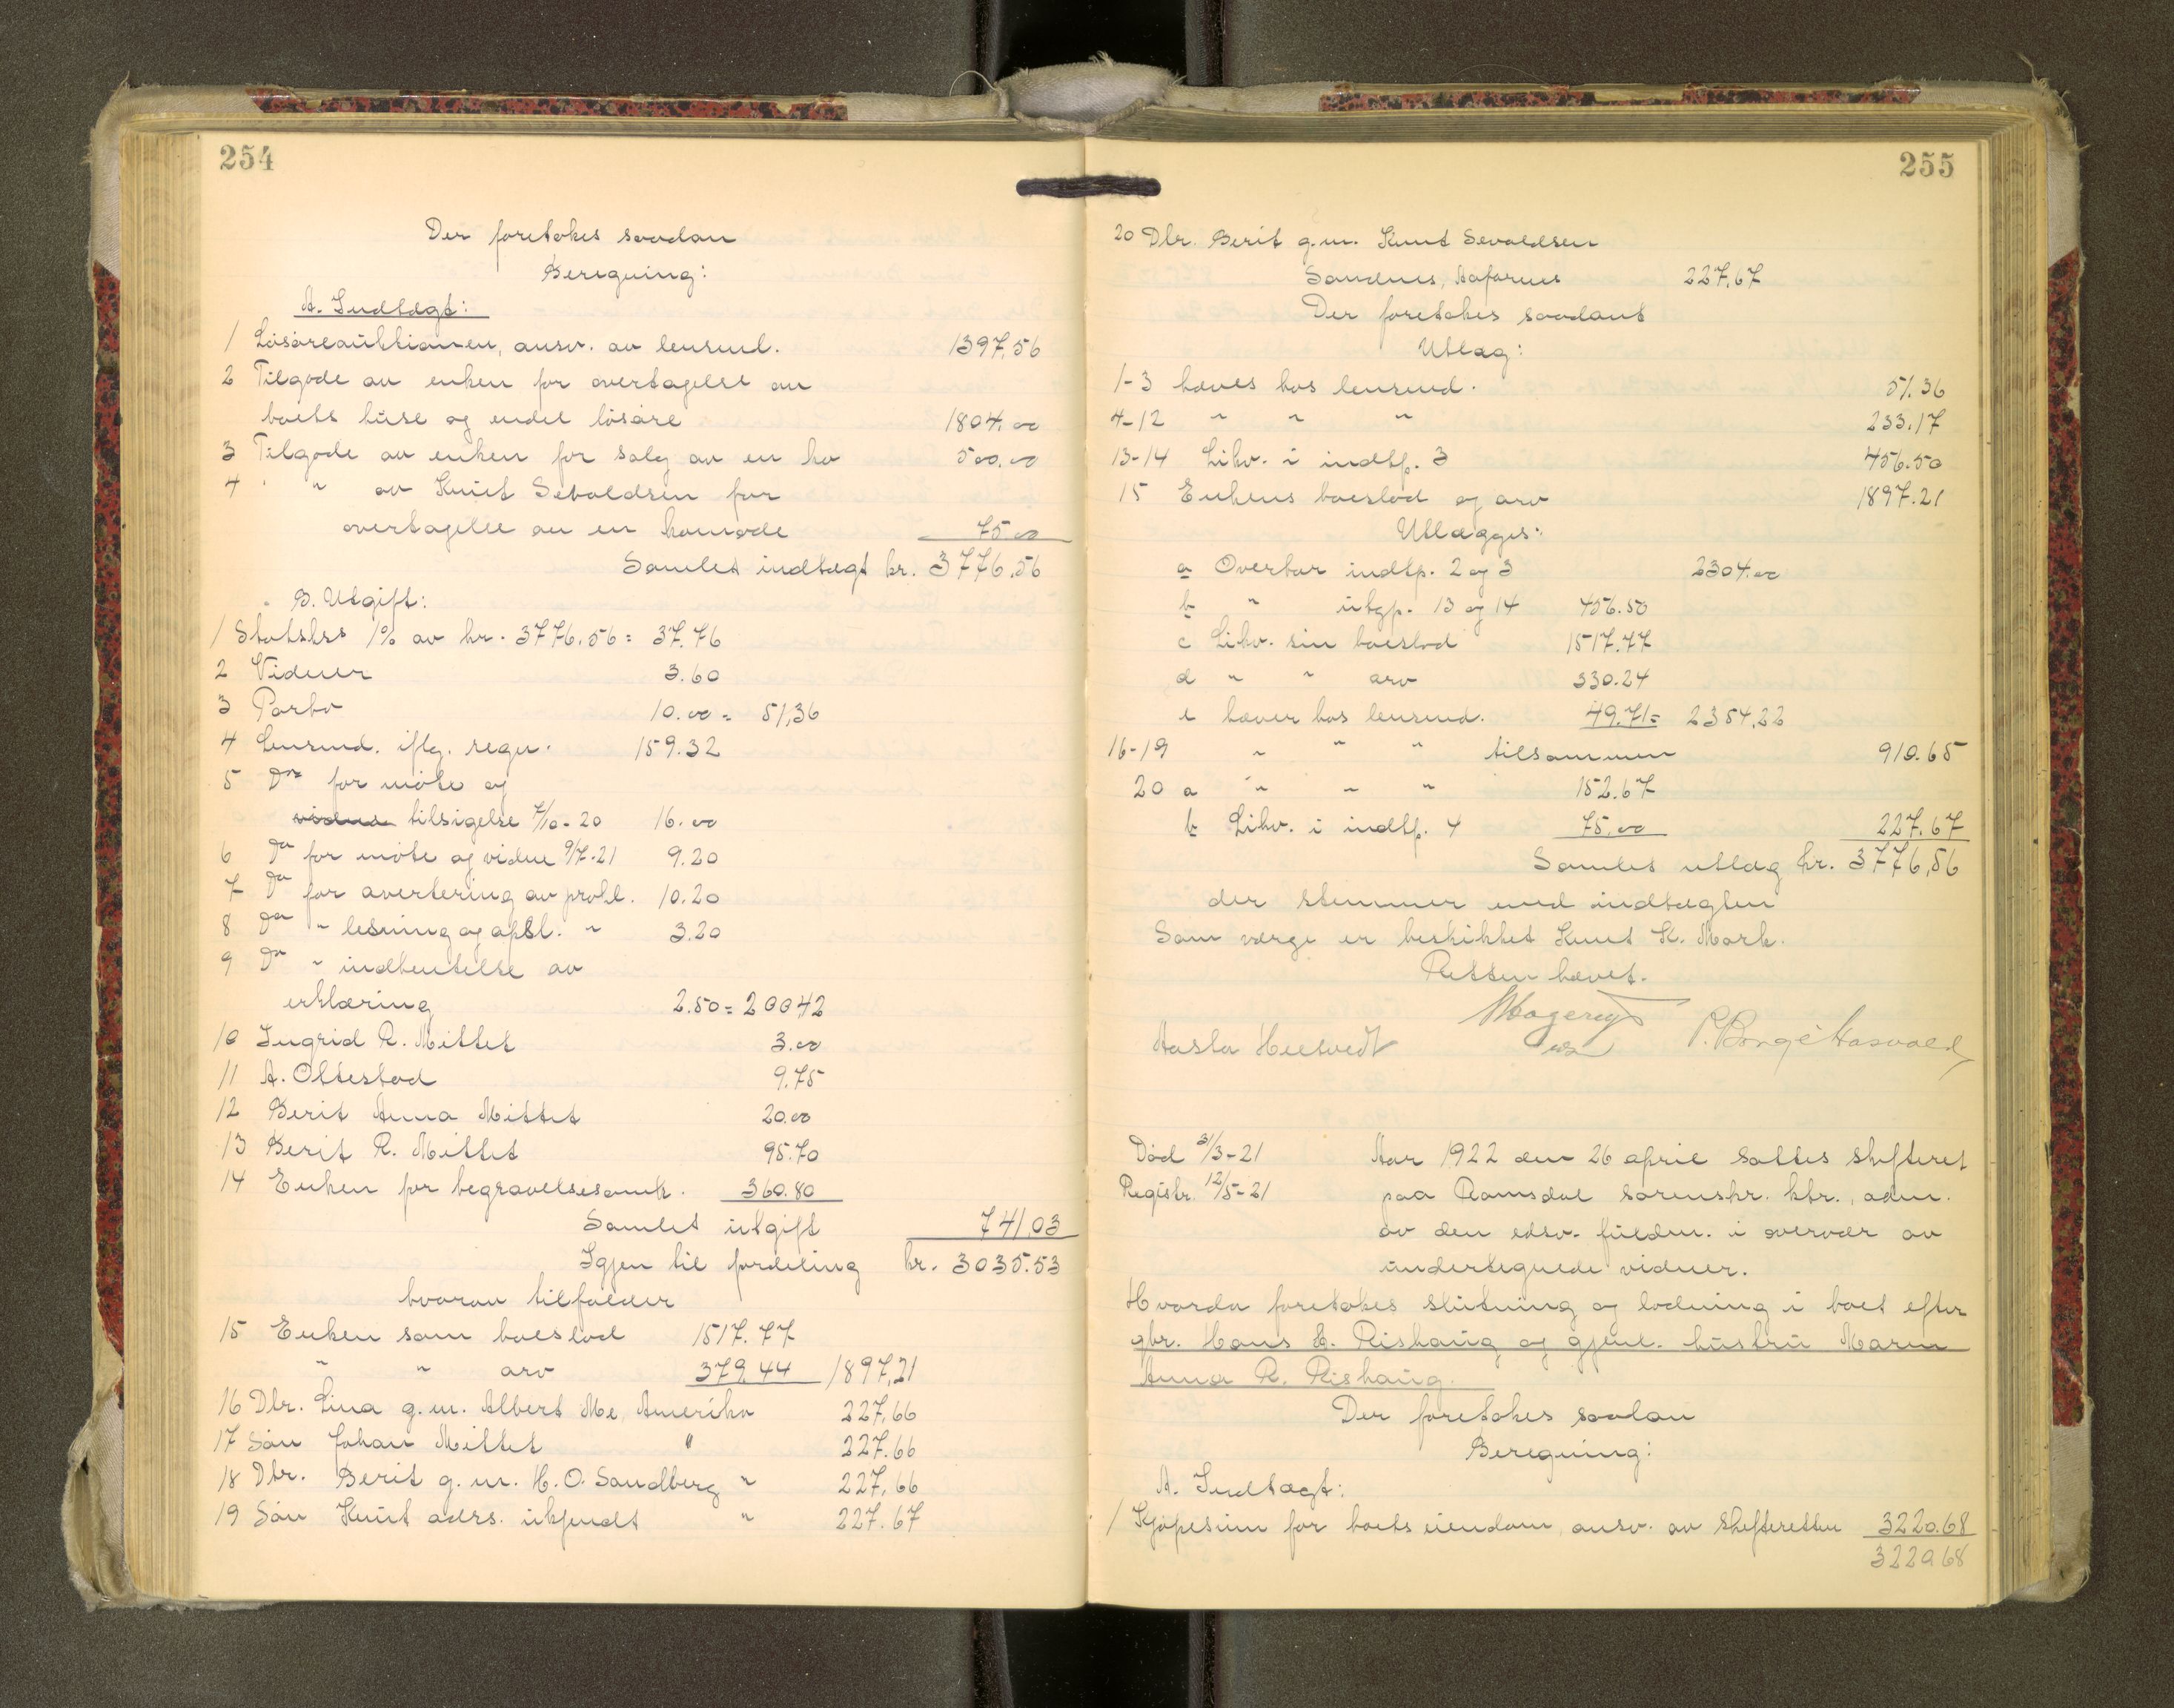 254
Der foretokes saadan
Beregning:
A. Indtægt:
1 Løsøreauktionen, ansv. av lensmd. 1397,56
2 Tilgode av enken for overtagelse av
boets huse og endel løsøre 1804.00
3 Tilgode av enken for salg av en ko 500.00
4 " " av Knut Sevaldsen for
overtagelse av en komode 75.00
Samlet indtægt kr. 3776.56
B. Utgift:
1 Statsks 1% av kr. 3776.56 = 37.76
2 Vidner 3.60
3 Porto 10.00 = 51,36
4 Lensmd. iflg. regn. 159.32
5 Do for møte og
vidne tilsigelse 7/10-20 16.00
6 Do for møte og vidne 9/7-21 9.20
7 Do for avertering av prokl. 10.20
8 Do " lesning og opsl. " 3.20
9 Do " indhentelse av
erklæring 2.50 = 200 42
10 Ingrid R. Mittet 3.00
11 A. Oltestad 9.75
12 Berit Anna Mittet 20.00
13 Berit R. Mittet 95.70
14 Enken for begravelsesomk. 360.80
Samlet utgift 741,03
Igjen til fordeling kr. 3035.53
hvorav tilfalder
15 Enken som boeslod 1517.77
" " arv 379.44 1897,21
16 Dtr. Lina g.m. Albert Me, Amerika 227,66
17 Søn Johan Mittet " 227.66
18 Dtr. Berit g.m. H. O. Sandberg " 227,66
19 Søn Knut adrs. ukjendt " 227.67
255
20 Dtr. Berit g.m. Knut Sevaldsen
Sandnes, Aafarnes 227,67
Der foretokes saadant
Utlæg:
1-3 hæves hos lensmd. 51.36
4-12 " " " 233.17
13-14 Likv. i indtp. 3 456.50
15 Enkens boeslod og arv 1897.21
Utlægges:
a Overtar indtp. 2 og 3 2304.00
b " utgp. 13 og 14 456.50
c Likv. sin boeslod 1517.77
d " " arv 330.24
e hæver hos lensmd. 49.71 = 2354,22
16-19 " " " tilsammen 910.65
20 a " " " 152.67
b Likv. i indtp. 4 75.00 227,67
Samlet utlæg kr. 3776,56
der stemmer med indtægten
Som værge er beskikket Knut K. Mork.
Retten hævet.
Aasta
Død 31/3-21 Aar 1922 den 26 april sattes skifteret
Registr. 12/5-21 paa Romsdal sorenskr. ktr., adm.
av den edsv. fuldm. i overvær av
undertegnede vidner.
Hvorda foretokes slutning og lodning i boet efter
gbr. Hans H. Rishaug og gjenl. hustru Maren
Anna R. Rishaug.
Der foretokes saadan
Beregning:
A. Indtægt:
1 Kjøpesum for boets eiendom, ansv. av skifteretten 3220.68
3220.68